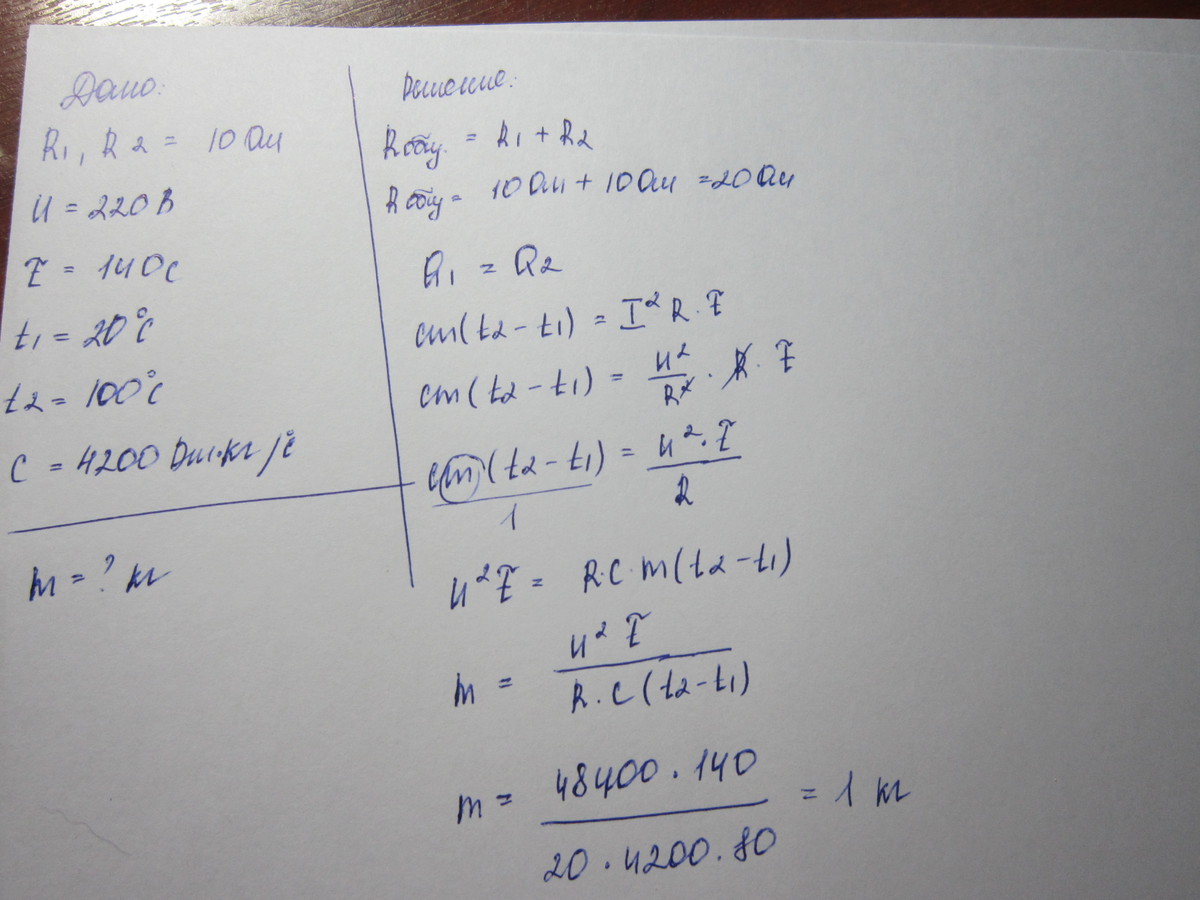 Дано:
R1, R2 = 10 Ом
U = 220 В
τ = 140 с
t1 = 20°C
t2 = 100°C
C = 4200 Дж·кг/°C
m = ? кг
Решение:
Rобщ. = R1 + R2
Rобщ = 10 Ом + 10 Ом = 20 Ом
Q1 = Q2
cm(t2 - t1) = I² R · τ
cm(t2 - t1) = U²/R² · R · τ
cm(t2 - t1)/1 = U² · τ/R
U² τ = R·C·m(t2 - t1)
m = U² τ/R·C(t2 - t1)
m = 48400 · 140/20 · 4200 · 80 = 1 кг